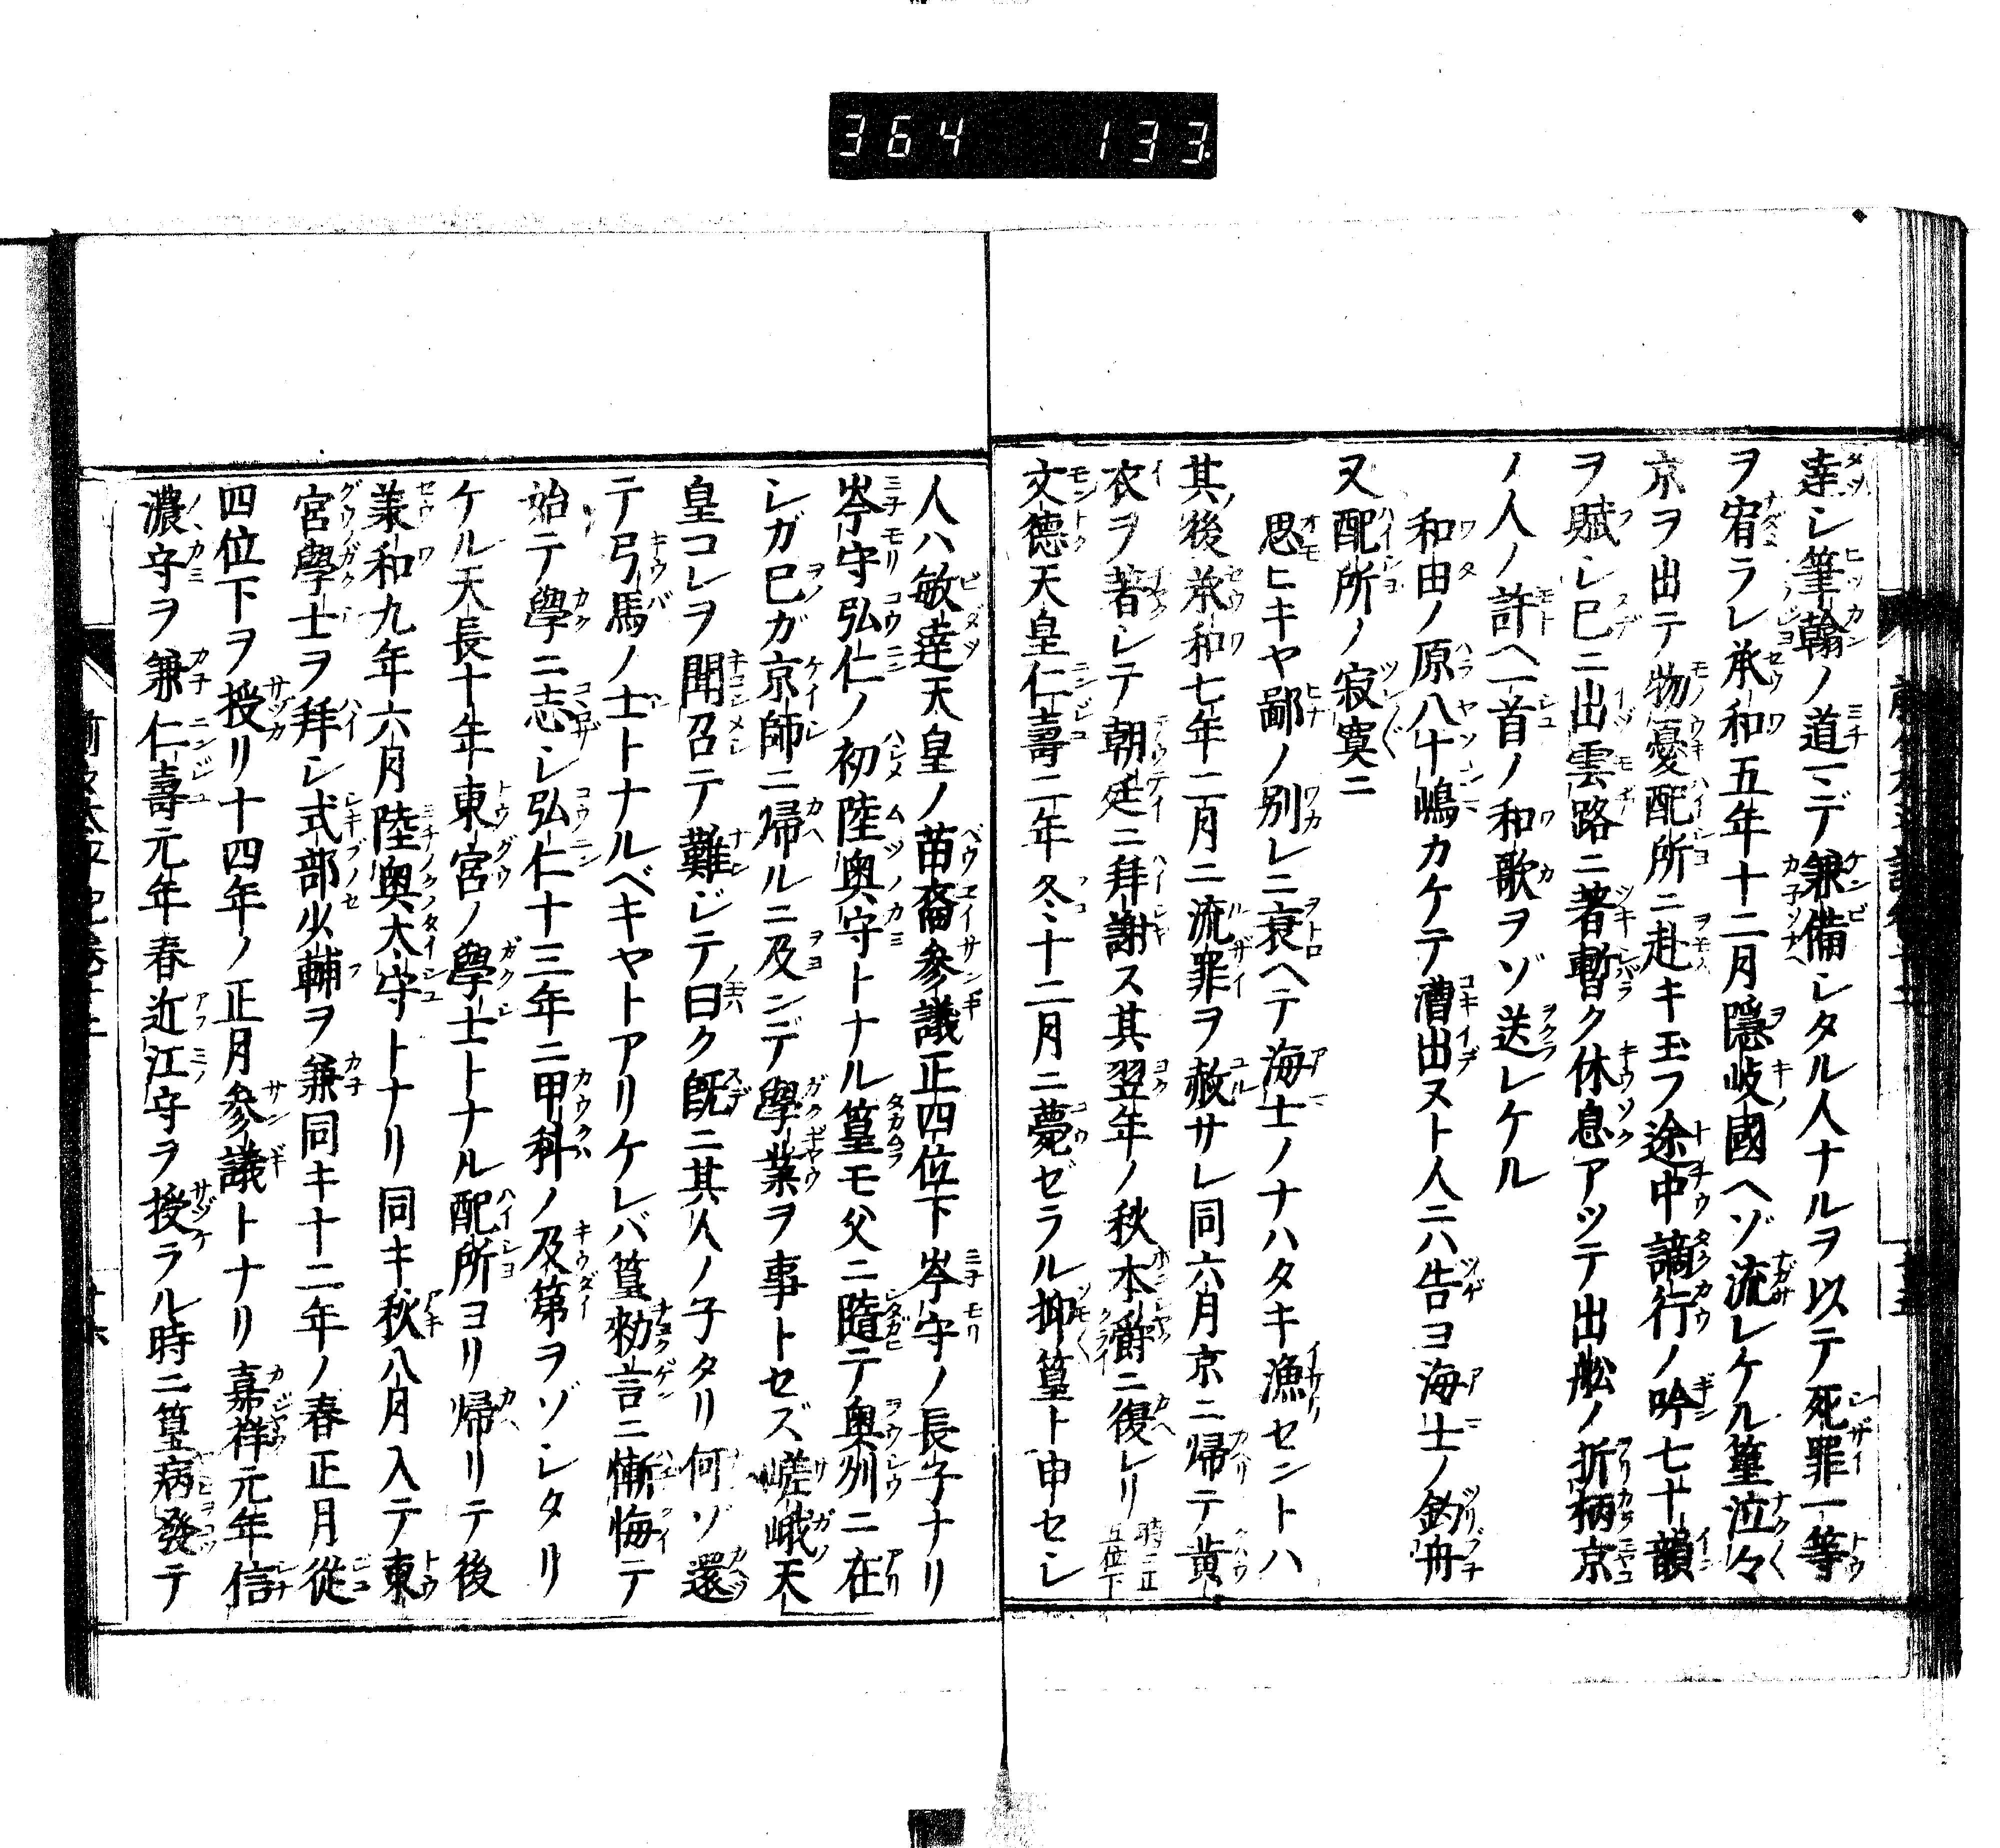 364 133
達シ筆翰ノ道マデ兼備シタル人ナルヲ以テ死罪一等
ヲ宥ラレ承和五年十二月隠岐國ヘゾ流レケル篁泣々
京ヲ出テ物憂配所ニ赴キ玉フ途中謫行ノ吟七十韻
ヲ賦シ已ニ出雲路ニ著暫ク休息アツテ出舩ノ折柄京
ノ人ノ許ヘ一首ノ和歌ヲゾ送レケル
和田ノ原八十嶋カケテ漕出ヌト人ニハ告ヨ海士ノ釣舟
又配所ノ寂寞ニ
思ヒキヤ鄙ノ別レニ衰ヘテ海士ノナハタキ漁セントハ
其ノ後承和七年二月ニ流罪ヲ赦サレ同六月京ニ帰テ黄
衣ヲ著シテ朝廷ニ拜謝ス其翌年ノ秋本爵ニ復レリ時ニ正五位下
文德天皇仁壽二年冬十二月ニ薨ゼラル抑篁ト申セシ
人ハ敏達天皇ノ苗裔參議正四位下岑守ノ長子ナリ
岑守弘仁ノ初陸奥守トナル篁モ父ニ隨テ奥州ニ在
シガ已ガ京師ニ帰ルニ及ンデ學業ヲ事トセズ嵯峨天
皇コレヲ聞召テ難ジテ曰ク既ニ其人ノ子タリ何ゾ還
テ弓馬ノ士トナルベキヤトアリケレバ篁勅言ニ慚悔テ
始テ學ニ志シ弘仁十三年ニ甲科ノ及第ヲゾシタリ
ケル天長十年東宮ノ學士トナル配所ヨリ帰リテ後
兼和九年六月陸奥太守トナリ同キ秋八月入テ東
宮學士ヲ拜シ式部少輔ヲ兼同キ十二年ノ春正月從
四位下ヲ授リ十四年ノ正月參議トナリ嘉祥元年信
濃守ヲ兼仁壽元年春近江守ラ授ラル時ニ篁病發テ